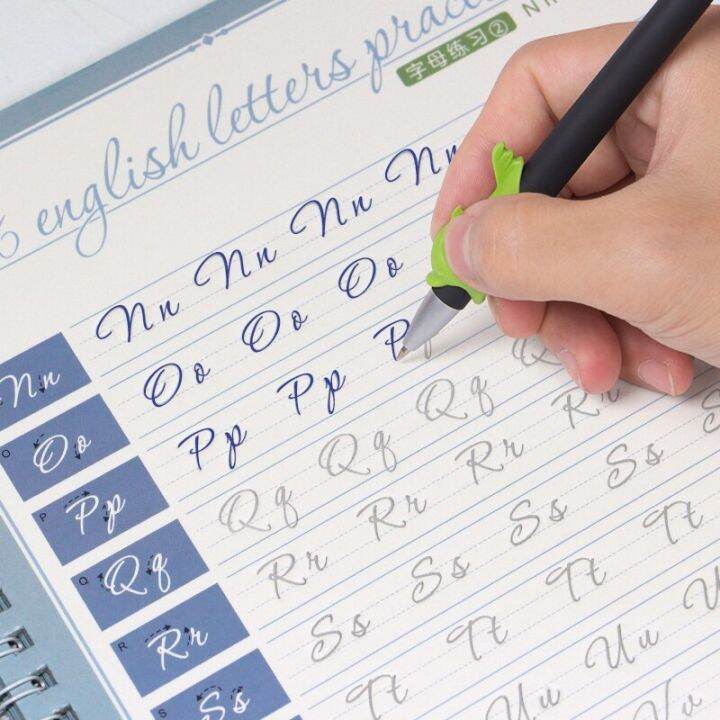 6 english letters practi
字母练习② NI
Nn Nn Nn Nn Nn
O Oo Oo Oo Oo
P Pp Pp Pp P
Q Qq Qq Qq Qq
R Rr Rr Rr Rr Rr
S Ss Ss Ss Ss Ss
Tt Tt Tt Tt
Uu Uu
Vu